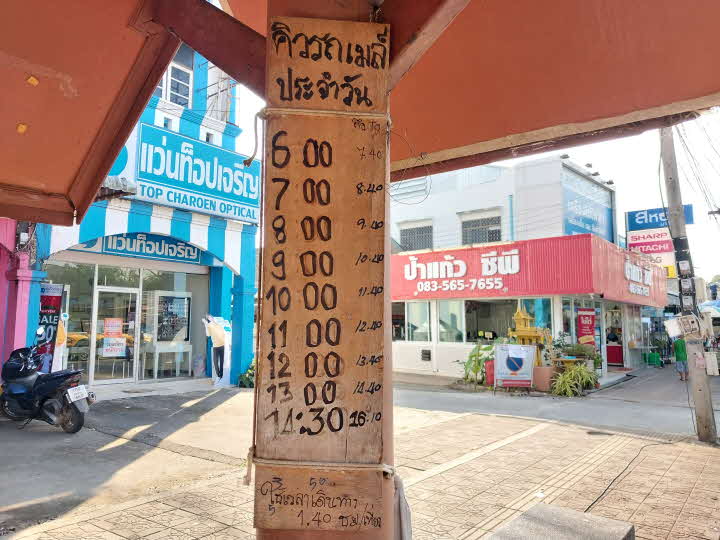 คิวรถเมล์
ประจำวัน
6 00 7.40
7 00 8.40
8 00 9.40
9 00 10.40
10 00 11.40
11 00 12.40
12 00 13.45
13 00 14.40
14:30 16.10
ใช้เวลาเดินทาง
1.40 ชม/เที่ยว
แว่นท็อปเจริญ
TOP CHAROEN OPTICAL
แว่นท็อปเจริญ
SALE
ป้าแก้ว ซีพี
083-565-7655
SHARP
HITACHI